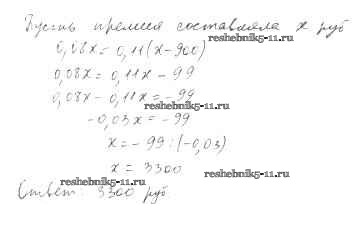 Пусть премия составляла x руб
0,08x = 0,11(x-900)
reshebnik5-11.ru
0,08x = 0,11x - 99
0,08x - 0,11x = -99
reshebnik5-11.ru
-0,03x = -99
x = -99 : (-0,03)
x = 3300
reshebnik5-11.ru
reshebnik5-11.ru
Ответ: 3300 руб.